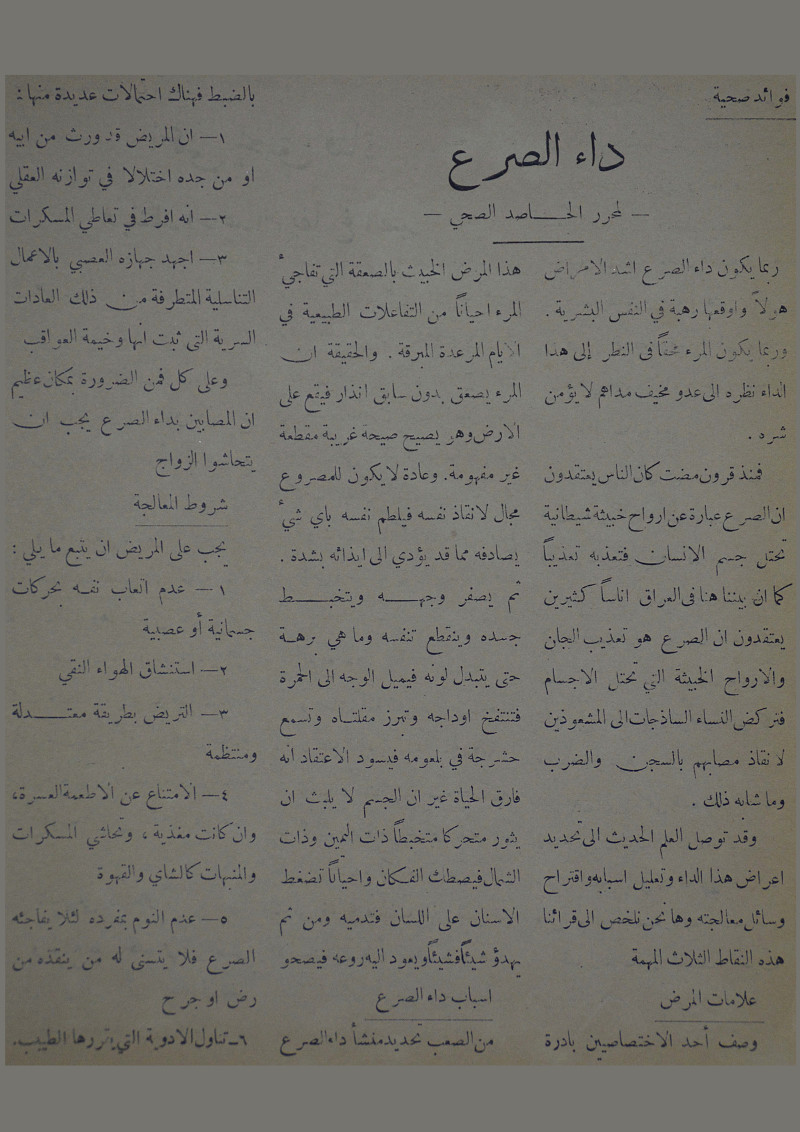 فوائد صحية
داء الصرع
— لمحرر الحاصد الصحي —
ربما يكون داء الصرع اشد الامراض
هولاً واوقعها رهبة في النفس البشرية .
وربما يكون المرء محقاً في النظر إلى هذا
الداء نظره الى عدو مخيف مداهم لا يؤمن
شره .
فمنذ قرون مضت كان الناس يعتقدون
ان الصرع عبارة عن ارواح خبيثة شيطانية
تحتل جسم الانسان فتعذبه تعذيباً
كما ان بيننا هنا في العراق اناساً كثيرين
يعتقدون ان الصرع هو تعذيب الجان
والارواح الخبيثة التي تحتل الاجسام
فتركض النساء الساذجات الى المشعوذين
لانقاذ مصابهم بالسجن والضرب
وما شابه ذلك .
وقد توصل العلم الحديث الى تحديد
اعراض هذا الداء وتعليل اسبابه واقتراح
وسائل معالجته وها نحن نلخص الى قرائنا
هذه النقاط الثلاث المهمة
علامات المرض
وصف أحد الاختصاصيين بادرة
هذا المرض الخبيث بالصعقة التي تفاجيء
المرء احياناً من التفاعلات الطبيعية في
الايام المرعدة المبرقة . والحقيقة ان
المرء يصعق بدون سابق انذار فيقع على
الارض وهو يصيح صيحة غريبة مقطعة
غير مفهومة. وعادة لا يكون للمصروع
مجال لانقاذ نفسه فيلطم نفسه باي شيء
يصادفه مما قد يؤدي الى ايذائه بشدة .
ثم يصفر وجهه ويتخبط
جسده وينقطع تنفسه وما هي برهة
حتى يتبدل لونه فيميل الوجه الى الحمرة
فتنتفخ اوداجه وتبرز مقلتاه وتسمع
حشرجة في بلعومه فيسود الاعتقاد انه
فارق الحياة غير ان الجسم لا يلبث ان
يثور متحركا متخبطاً ذات اليمين وذات
الشمال فيصطك الفكان واحياناً تضغط
الاسنان على اللسان فتدميه ومن ثم
يهدؤ شيئاً فشيئاً ويعود اليه روعه فيصحو
اسباب داء الصرع
من الصعب تحديد منشأ داء الصرع
بالضبط فهناك احتمالات عديدة منها :
١— ان المريض قد ورث من ابيه
او من جده اختلالا في توازنه العقلي
٢— انه افرط في تعاطي المسكرات
٣— اجهد جهازه العصبي بالاعمال
التناسلية المتطرفة من ذلك العادات
السرية التي ثبت انها وخيمة العواقب
وعلى كل فمن الضرورة بمكان عظيم
ان المصابين بداء الصرع يجب ان
يتحاشوا الزواج
شروط المعالجة
يجب على المريض ان يتبع ما يلي :
١— عدم اتعاب نفسه بحركات
جسمانية أو عصبية
٢— استنشاق الهواء النقي
٣— التريض بطريقة معتدلة
ومنتظمة
٤— الامتناع عن الاطعمة العسرة،
وان كانت مغذية ، وتحاشي المسكرات
والمنبهات كالشاي والقهوة
٥— عدم النوم بمفرده لئلا يفاجئه
الصرع فلا يتسنى له من ينقذه من
رض او جرح
٦— تناول الادوية التي يقررها الطبيب.